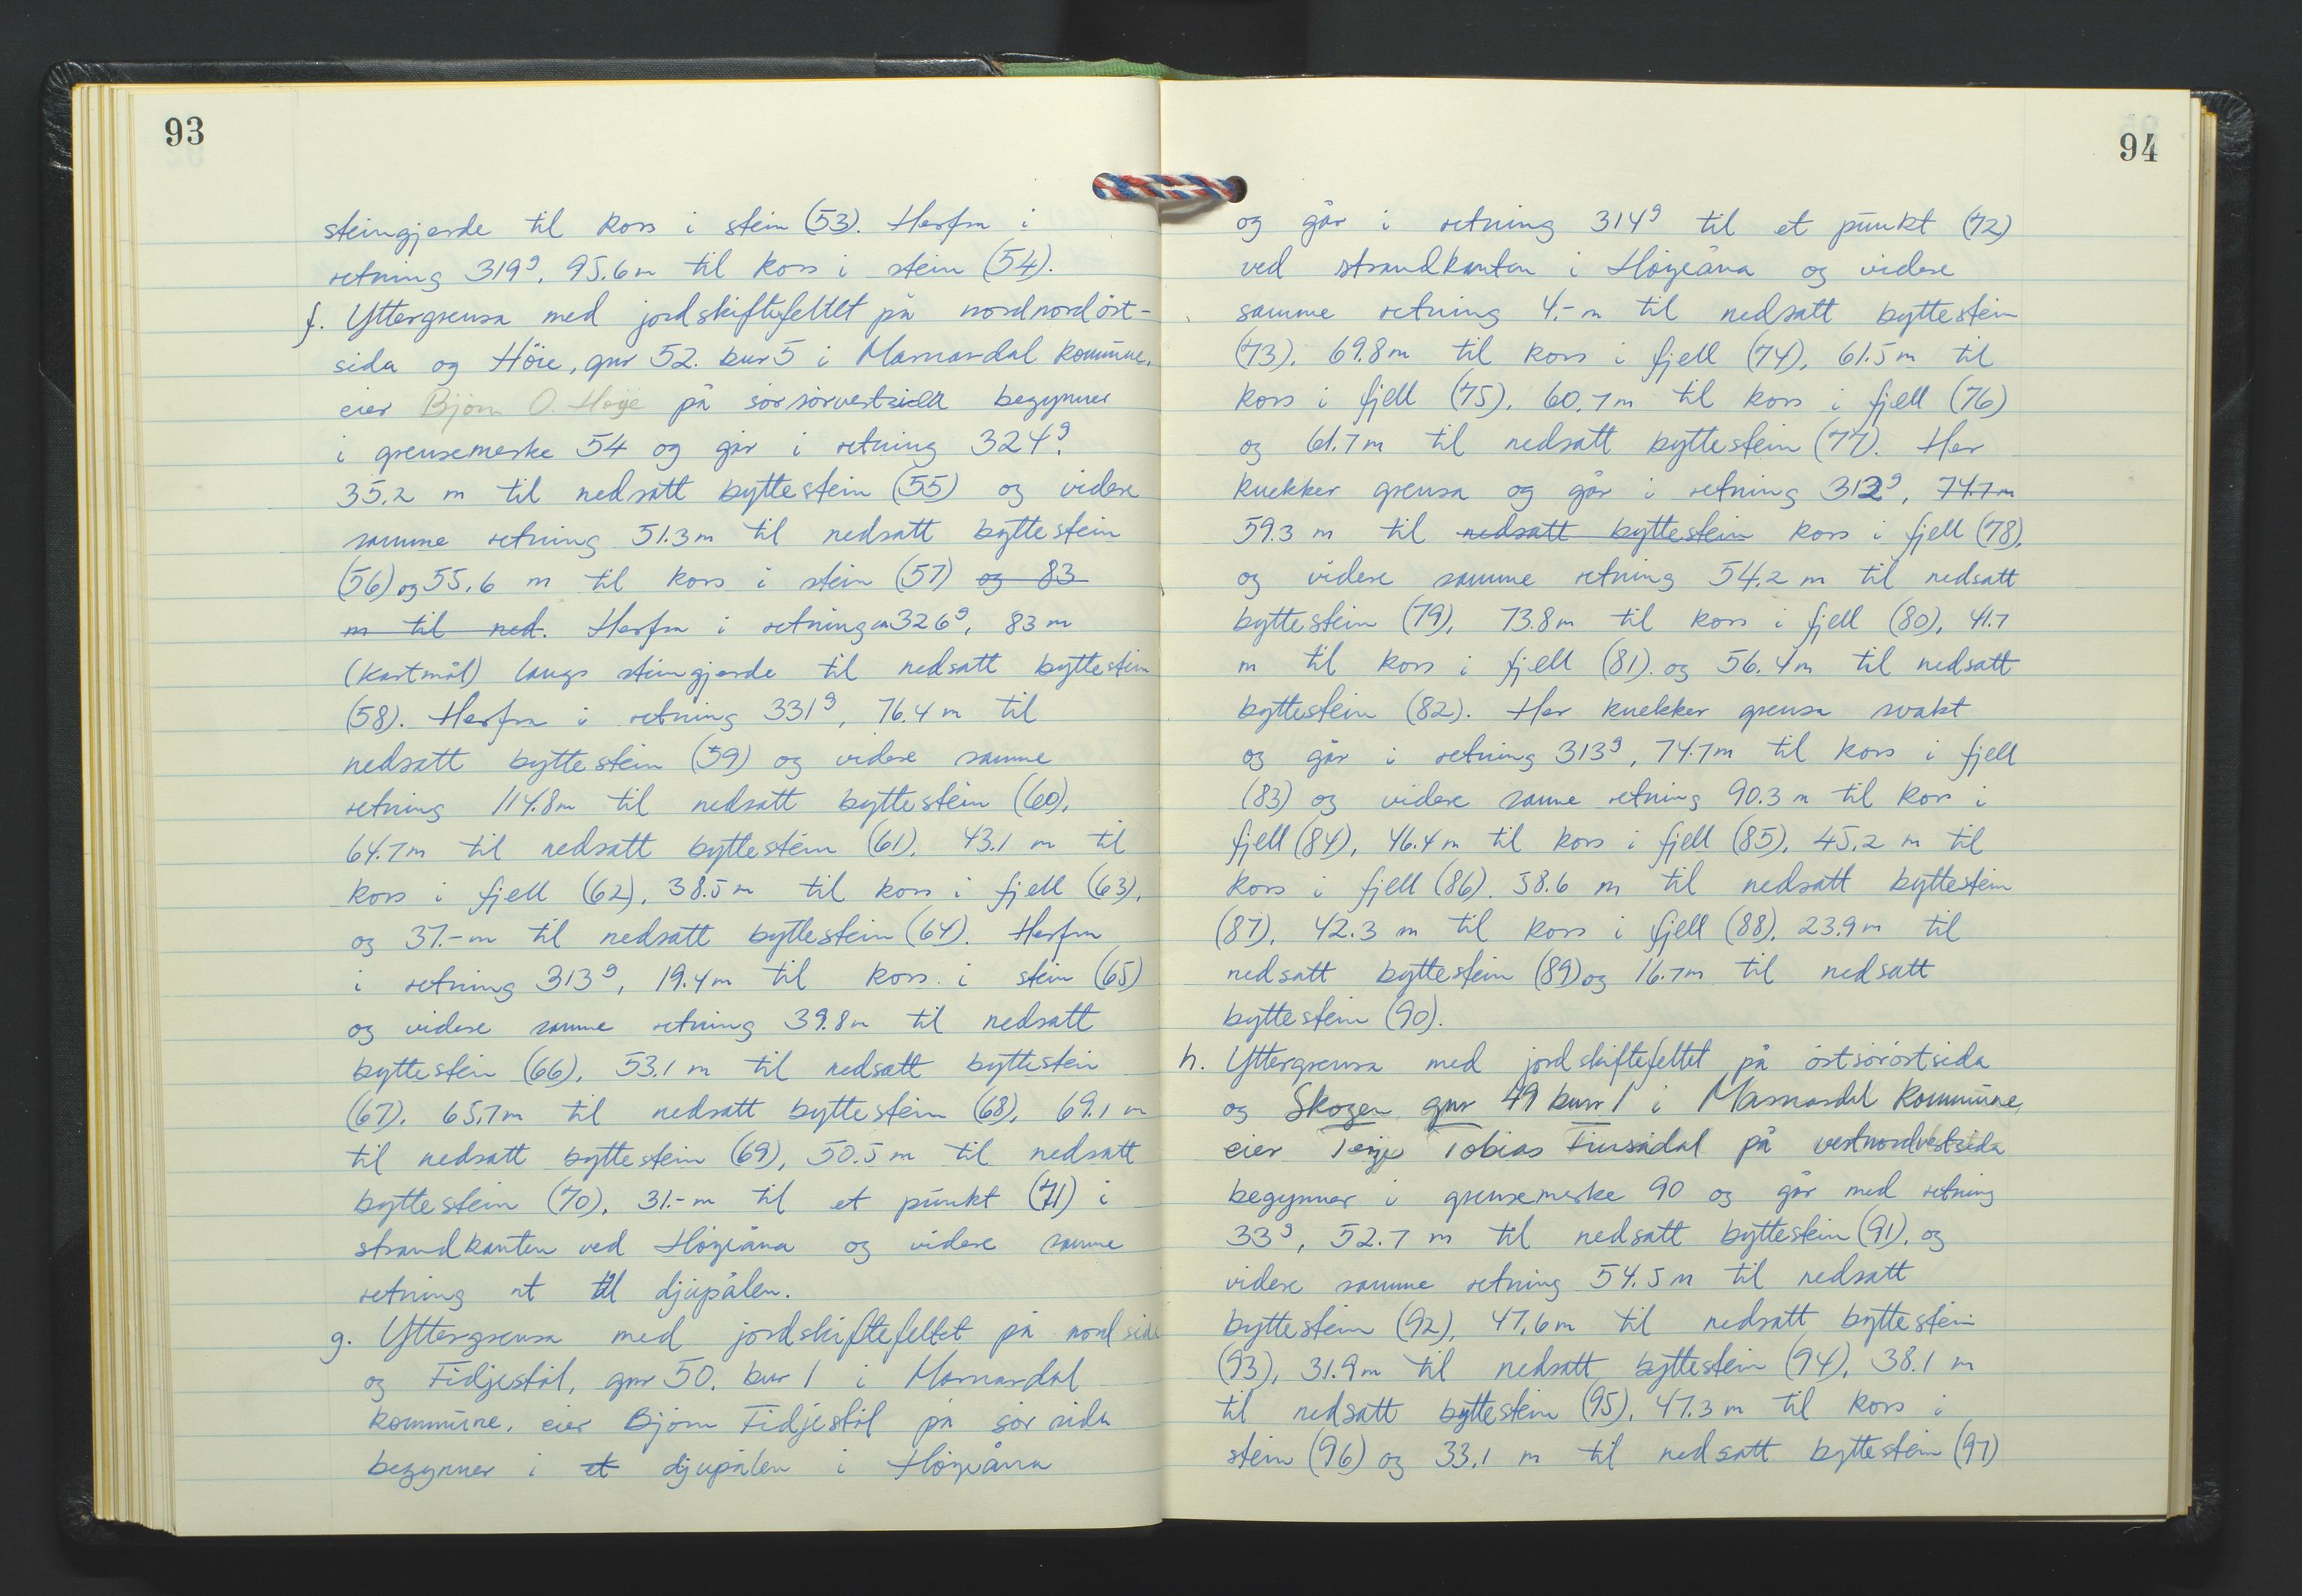 93
steingjerde til kors i stein (53). Herfra i
retning 319g, 95.6 m til kors i stein (54).
f. Yttergrensa med jordskiftefeltet på nordnordöst-
sida og Höie, gnr 52. bnr 5 i Marnardal kommune,
eier Bjørn O. Høye på sörsörvestsida begynner
i grensemerke 54 og går i retning 324g.
35.2 m til nedsatt byttestein (55) og videre
samme retning 51.3 m til nedsatt byttestein
(56) og 55.6 m til kors i stein (57) og 83
m til ned. Herfra i retning ca 326g, 83 m
(kartmål) langs steingjerde til nedsatt byttestein
(58). Herfra i retning 331g, 76.4 m til
nedsatt byttestein (59) og videre samme
retning 114.8 m til nedsatt byttestein (60),
64.7 m til nedsatt byttestein (61), 43.1 m til
kors i fjell (62), 38.5 m til kors i fjell (63),
og 37.- m til nedsatt byttestein (64). Herfra
i retning 313g, 19.4 m til kors i stein (65)
og videre samme retning 39.8 m til nedsatt
byttestein (66), 53.1 m til nedsatt byttestein
(67), 65.7 m til nedsatt byttestein (68), 69.1 m
til nedsatt byttestein (69), 50.5 m til nedsatt
byttestein (70), 31.- m til et punkt (71) i
strandkanten ved Höyeåna og videre samme
retning ut til djupålen.
g. Yttergrensa med jordskiftefeltet på nordside
og Fidjestöl, gnr 50. bnr 1 i Marnardal
kommune, eier Björn Fidjestöl på sör sida
begynner i et djupålen i Höyeåna
94
og går i retning 314g til et punkt (72)
ved strandkanten i Höyeåna og videre
samme retning 4.- m til nedsatt byttestein
(73), 69.8 m til kors i fjell (74), 61.5 m til
kors i fjell (75), 60.7 m til kors i fjell (76)
og 61.7 m til nedsatt byttestein (77). Her
knekker grensa og går i retning 312g, 74.7 m
59.3 m til nedsatt byttestein kors i fjell (78),
og videre samme retning 54.2 m til nedsatt
byttestein (79), 73.8 m til kors i fjell (80), 41.7
m til kors i fjell (81). og 56.4 m til nedsatt
byttestein (82). Her knekker grensa svakt
og går i retning 313g, 74.7 m til kors i fjell
(83) og videre samme retning 90.3 m til kors i
fjell (84), 46.4 m til kors i fjell (85), 45.2 m til
kors i fjell (86). 58.6 m til nedsatt byttestein
(87), 42.3 m til kors i fjell (88), 23.9 m til
nedsatt byttestein (89) og 16.7 m til nedsatt
byttestein (90).
h. Yttergrensa med jordskiftefeltet på östsöröstsida
og Skogen gnr 49 bnr 1 i Marnardal kommune,
eier Terje Tobias Finsådal på vestnordvestsida
begynner i grensemerke 90 og går med retning
33g, 52.7 m til nedsatt byttestein (91), og
videre samme retning 54.5 m til nedsatt
byttestein (92), 47.6 m til nedsatt byttestein
(93), 31.9 m til nedsatt byttestein (94), 38.1 m
til nedsatt byttestein (95), 47.3 m til kors i
stein (96) og 33.1 m til nedsatt byttestein (97)